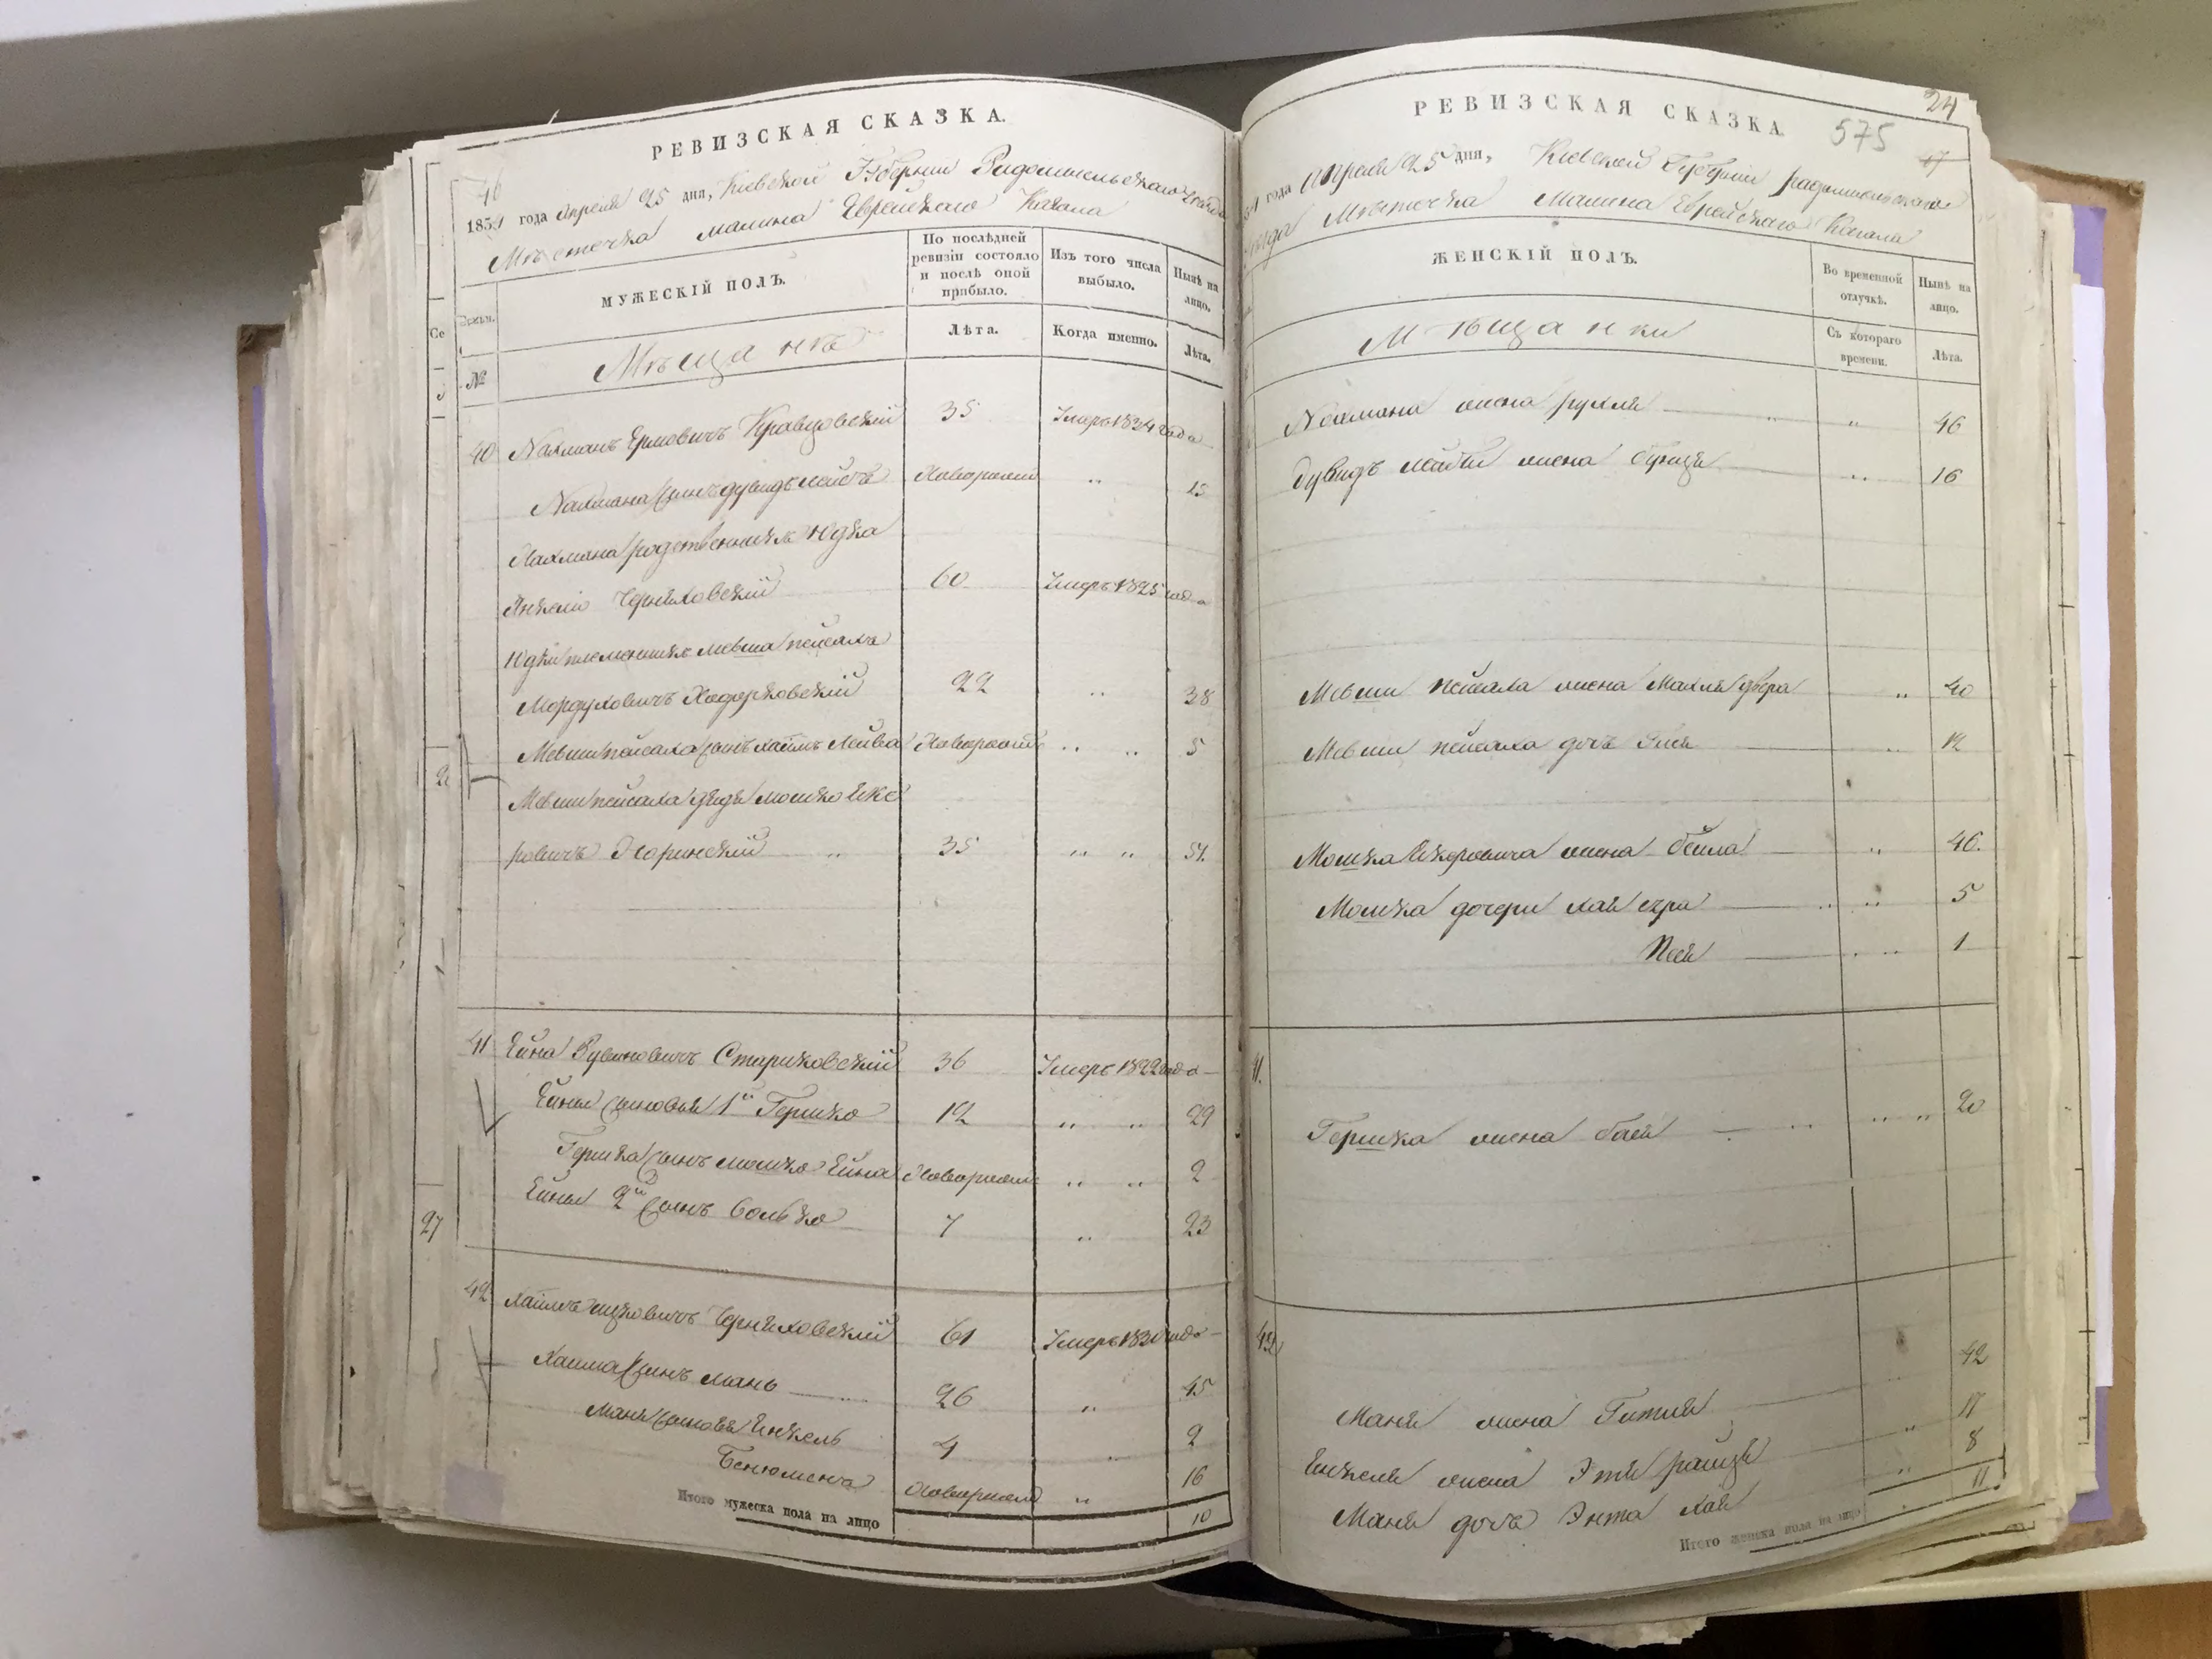 РЕВИЗСКАЯ СКАЗКА.
46
1834 года Апреля 25 дня, Киевской Губернии Радомысльскаго уезда
Мѣстечка Малина Еврейскаго Кагала
МУЖЕСКІЙ ПОЛЪ.
По послѣдней ревизіи состояло и послѣ оной прибыло.
Изъ того числа выбыло.
Нынѣ на лицо.
№
Мѣщанѣ
Лѣта.
Когда именно.
Лѣта.
40 Нахманъ Ермовичъ Кравцовскій 35 Умеръ 1824 года
Нахмана сынъ дувидъ лейба Новорожд " 15
Нахмана родственникъ Юдка
Янкелю Черняховскій 60 Умеръ 1825 года
Юдки племенникъ Мевша пейсахъ
Мордуховичъ Ходорковскій 22 " 38
Мевши пейсаха сынъ хаимъ Лейба Новорожд " " 5
Мевши пейсаха дядя Мошко Шке
ровичъ Норинскій " 35 " " 51.
41 Ейна Рувиновичъ Стариковскій 36 Умеръ 1822 года
Ейны сыновья 1й Гершко 12 " " 29
Гершка сынъ мошко Ейна Новорожд " " 2
Ейны 2й сынъ Волько 7 " 23
42 Хаимъ ицковичъ Черняховскій 61 Умеръ 1830 года
Хаима сынъ Мань 26 " 45
Маня сыновья Енкель 4 " 2
Бенюменъ Новорожд " 16
Итого мужеска пола на лицо 10
РЕВИЗСКАЯ СКАЗКА.
24
575
47
34 года Апреля 25 дня, Киевской Губернии радомысльскаго
уезда Мѣстечка Малина Еврейскаго Кагала
ЖЕНСКІЙ ПОЛЪ.
Во временной отлучкѣ.
Нынѣ на лицо.
Мѣщанки
Съ котораго времени.
Лѣта.
Нахмана жена рухля " " 46
дувидъ лейбы жена бунця " 16
Мевши пейсаха жена Махля двера " 40
Мевши пейсаха дочь Эися " 12
Мошка Шкеровича жена бейла " 46.
Мошка дочери хая сура " " 5
Песя " " 1
41.
Гершка жена бася " " " 20
42
Маня жена Гитля 42
Енкеля жена Этя райця " 17
Маня дочь Энта хая " 8
Итого женска пола на лицо 11
27